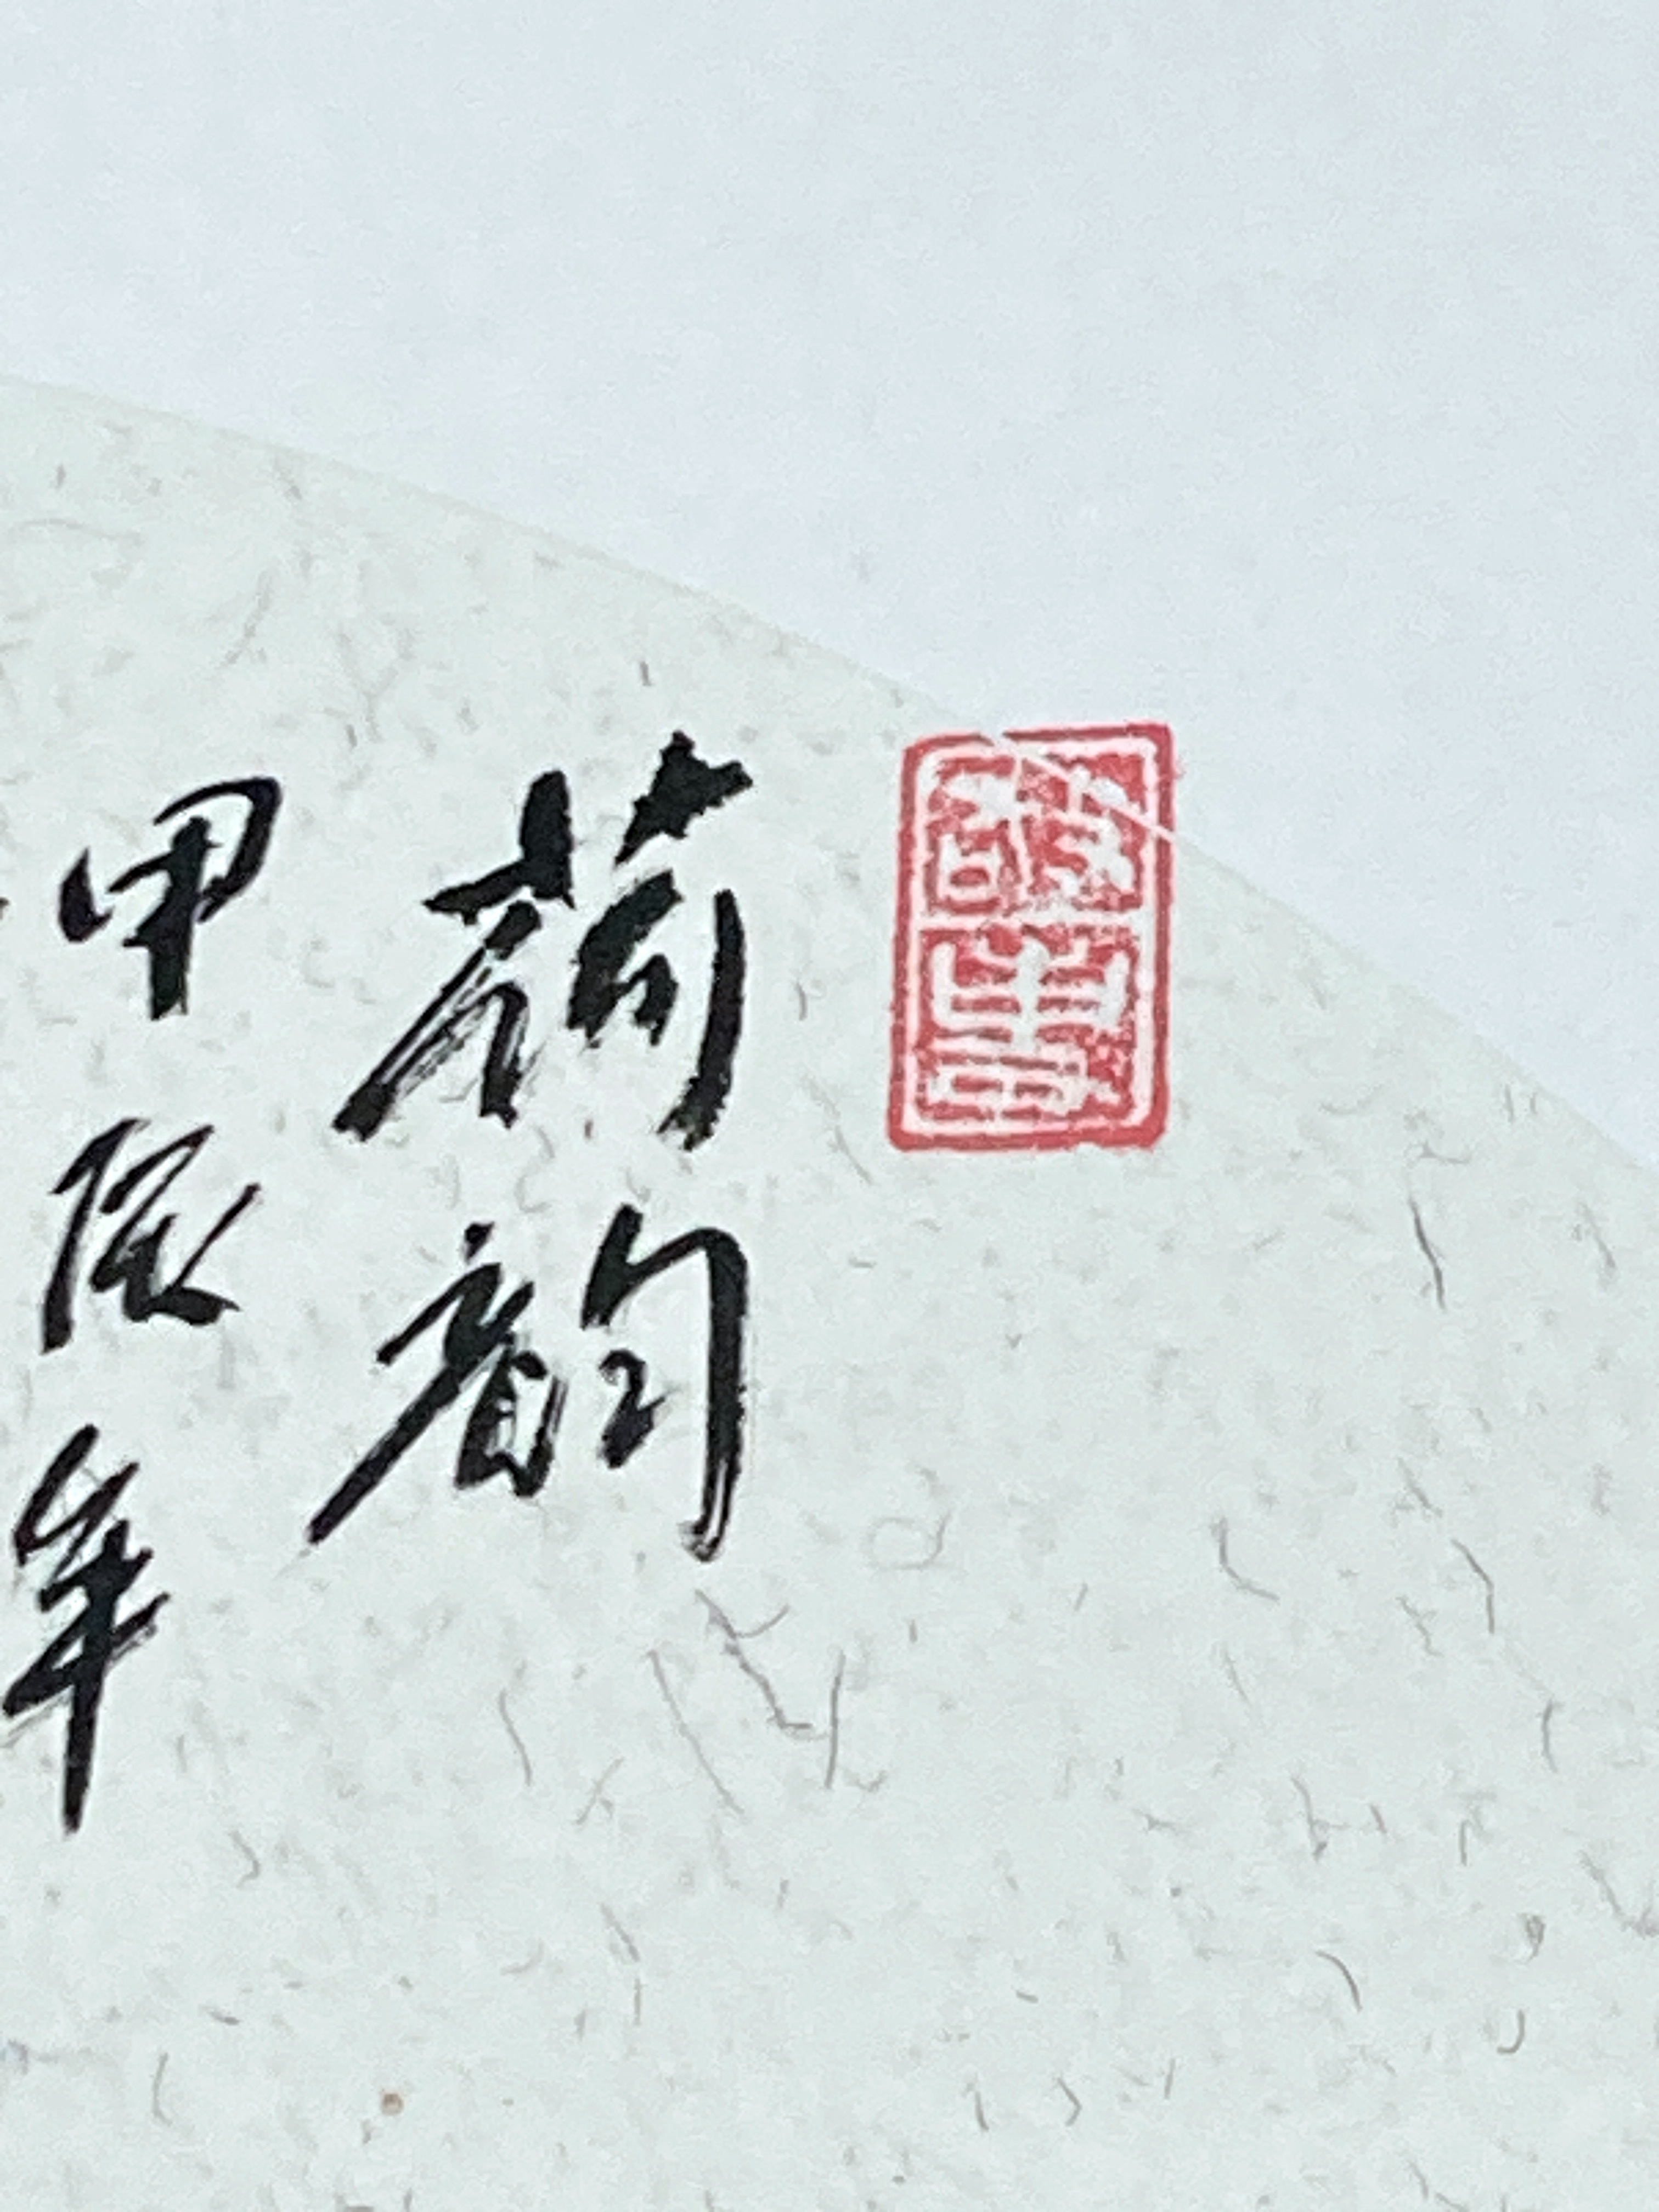 荷韵
甲辰年